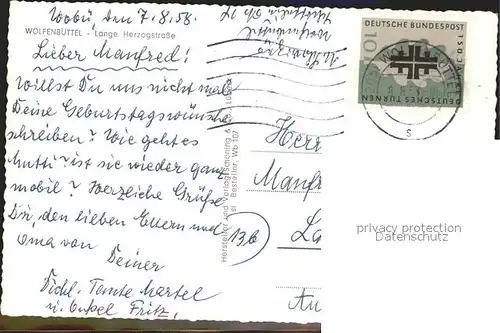 Wobü, den 7.8.58.
WOLFENBÜTTEL - Lange Herzogstraße
Lieber Manfred!
Willst Du uns nicht mal
Deine Geburtstagswünsche
schreiben? Wie geht es
Mutti? ist sie wieder ganz
mobil? Herzliche Grüße
Dir, den lieben Eltern und
Oma von Deiner
Tante Martel
u. Onkel Fritz.
Hersteller und Verlag Schöning & Co., Lübeck
Bestellnr. Wb 107
Herr
Manf
La
An
13b
DEUTSCHE BUNDESPOST
10
DEUTSCHES TURNEN
privacy protection
Datenschutz